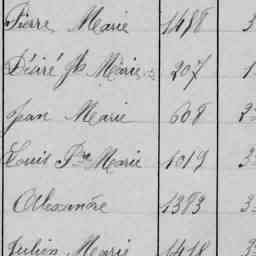 Pierre Marie 1488 3
Désiré Jh Marie 207 1
Jean Marie 608 2
Louis Fre Marie 1017 3
Alexandre 1383 3
Julien Marie 1418 3